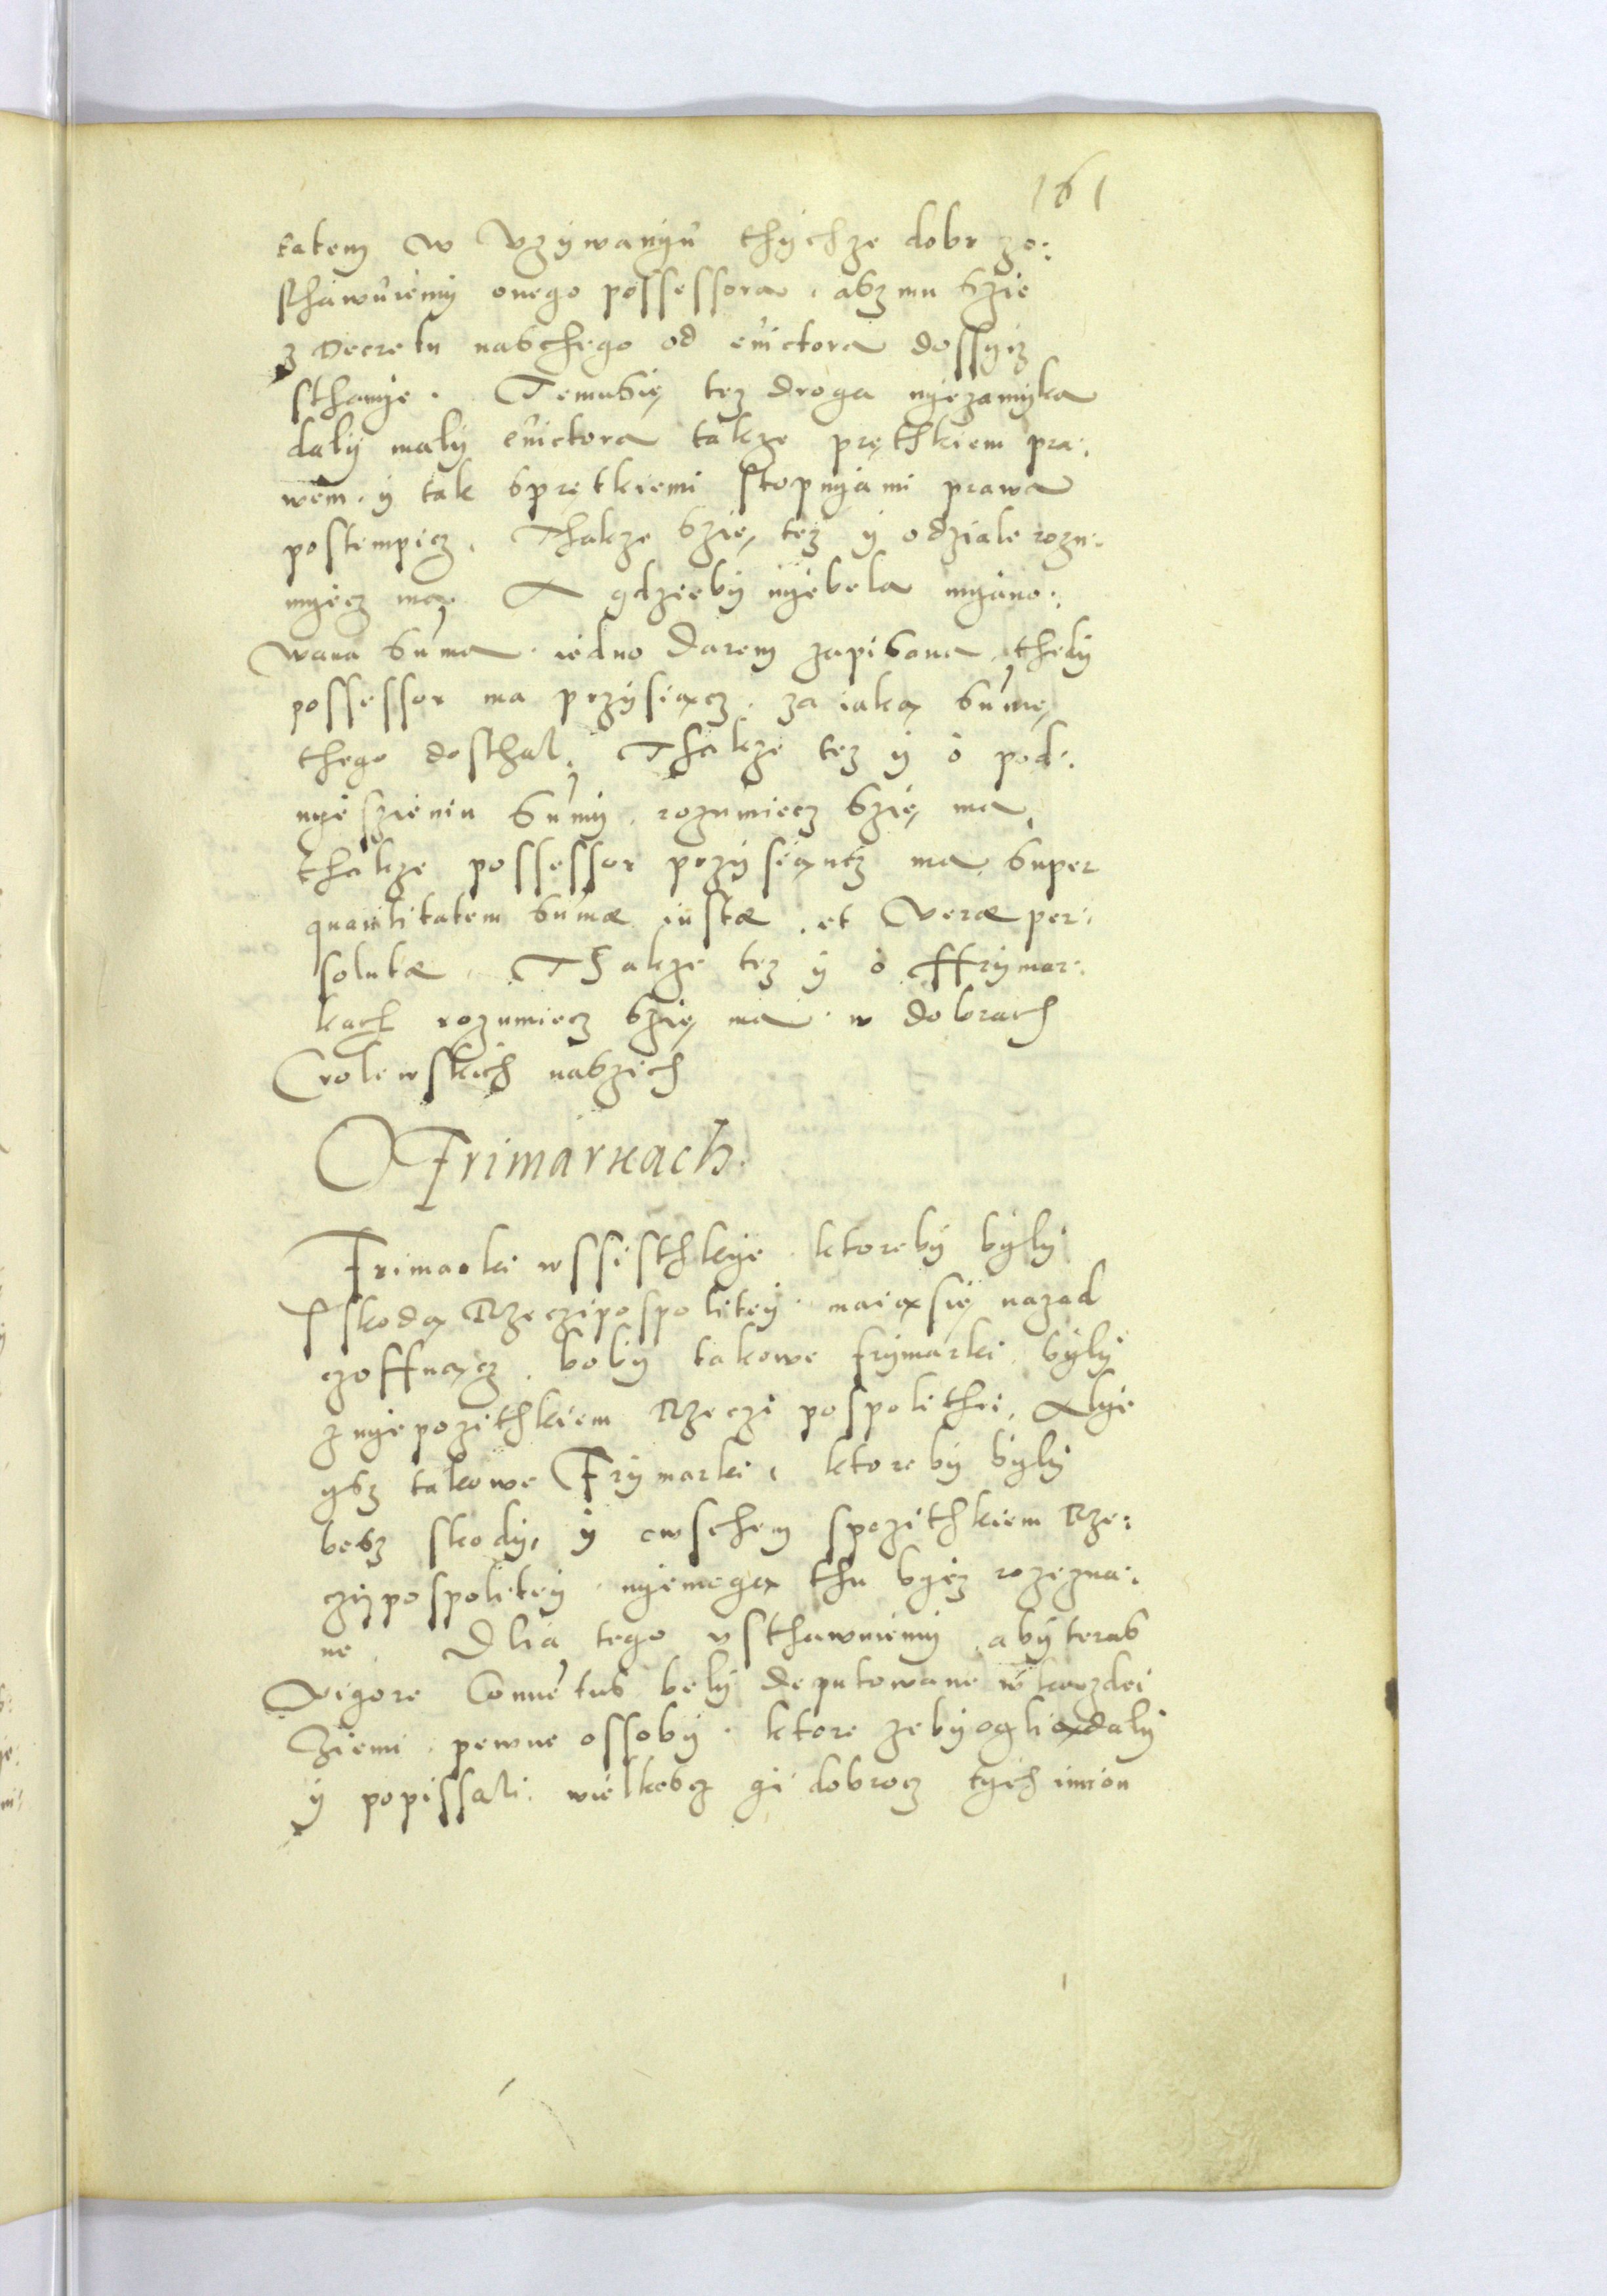 161
tatem w Vzÿwanÿu thÿchze dobr zo:
sthawuiemÿ onego possessora, asz mu szie
z Decretu naschego od euictora dossÿcz
sthanÿe. Temusię tez droga nÿezamÿka
dalÿ malÿ euictora takze prethkiem pra:
wem, ÿ tak sprętkiemi stopnÿami prawa
postempicz. Thakze szię tez ÿ odziale rozu:
mÿecz ma. A gdzieebÿ nÿebela mÿano:
wana suma, iedno Darem zapisana, thedÿ
possessor ma przÿsiącz, za iaką sumę
thego dosthal. Thakze tez ÿ o pod:
nÿeszieniu sumÿ, rozumiecz szię ma,
thakze possessor przÿsiąncz ma, super
quantitatem sumæ iustæ, et Veræ per:
solutæ. Thakze tez ÿ o ffrÿmar:
kach rozumiecz szię ma w dobrach
Crolewskich naszich
O Frimarkach.
Frimarki wssisthkÿe ktorebÿ bÿlÿ
sskodą Rzeczipospolitey, maiąsię nazad
czoffnącz, bobÿ takowe frÿmarki bÿlÿ
z nÿepozithkiem Rzeczi pospolithei, Alÿe
ÿsz takowe Frÿmarki, ktorebÿ bÿlÿ
besz skodÿ, ÿ owschem spozithkiem Rze:
czÿpospolitej, nÿemogą thu bÿcz rozezna:
ne. Dlia tego vsthawuiemÿ, abÿ teras
Vigore Conuētus belÿ deputowane w kazdei
Ziemi, pewne ossobÿ, ktore zebÿ oglią̨dalÿ
ÿ popissali, wielkoscz ÿ dobrocz tÿch imion